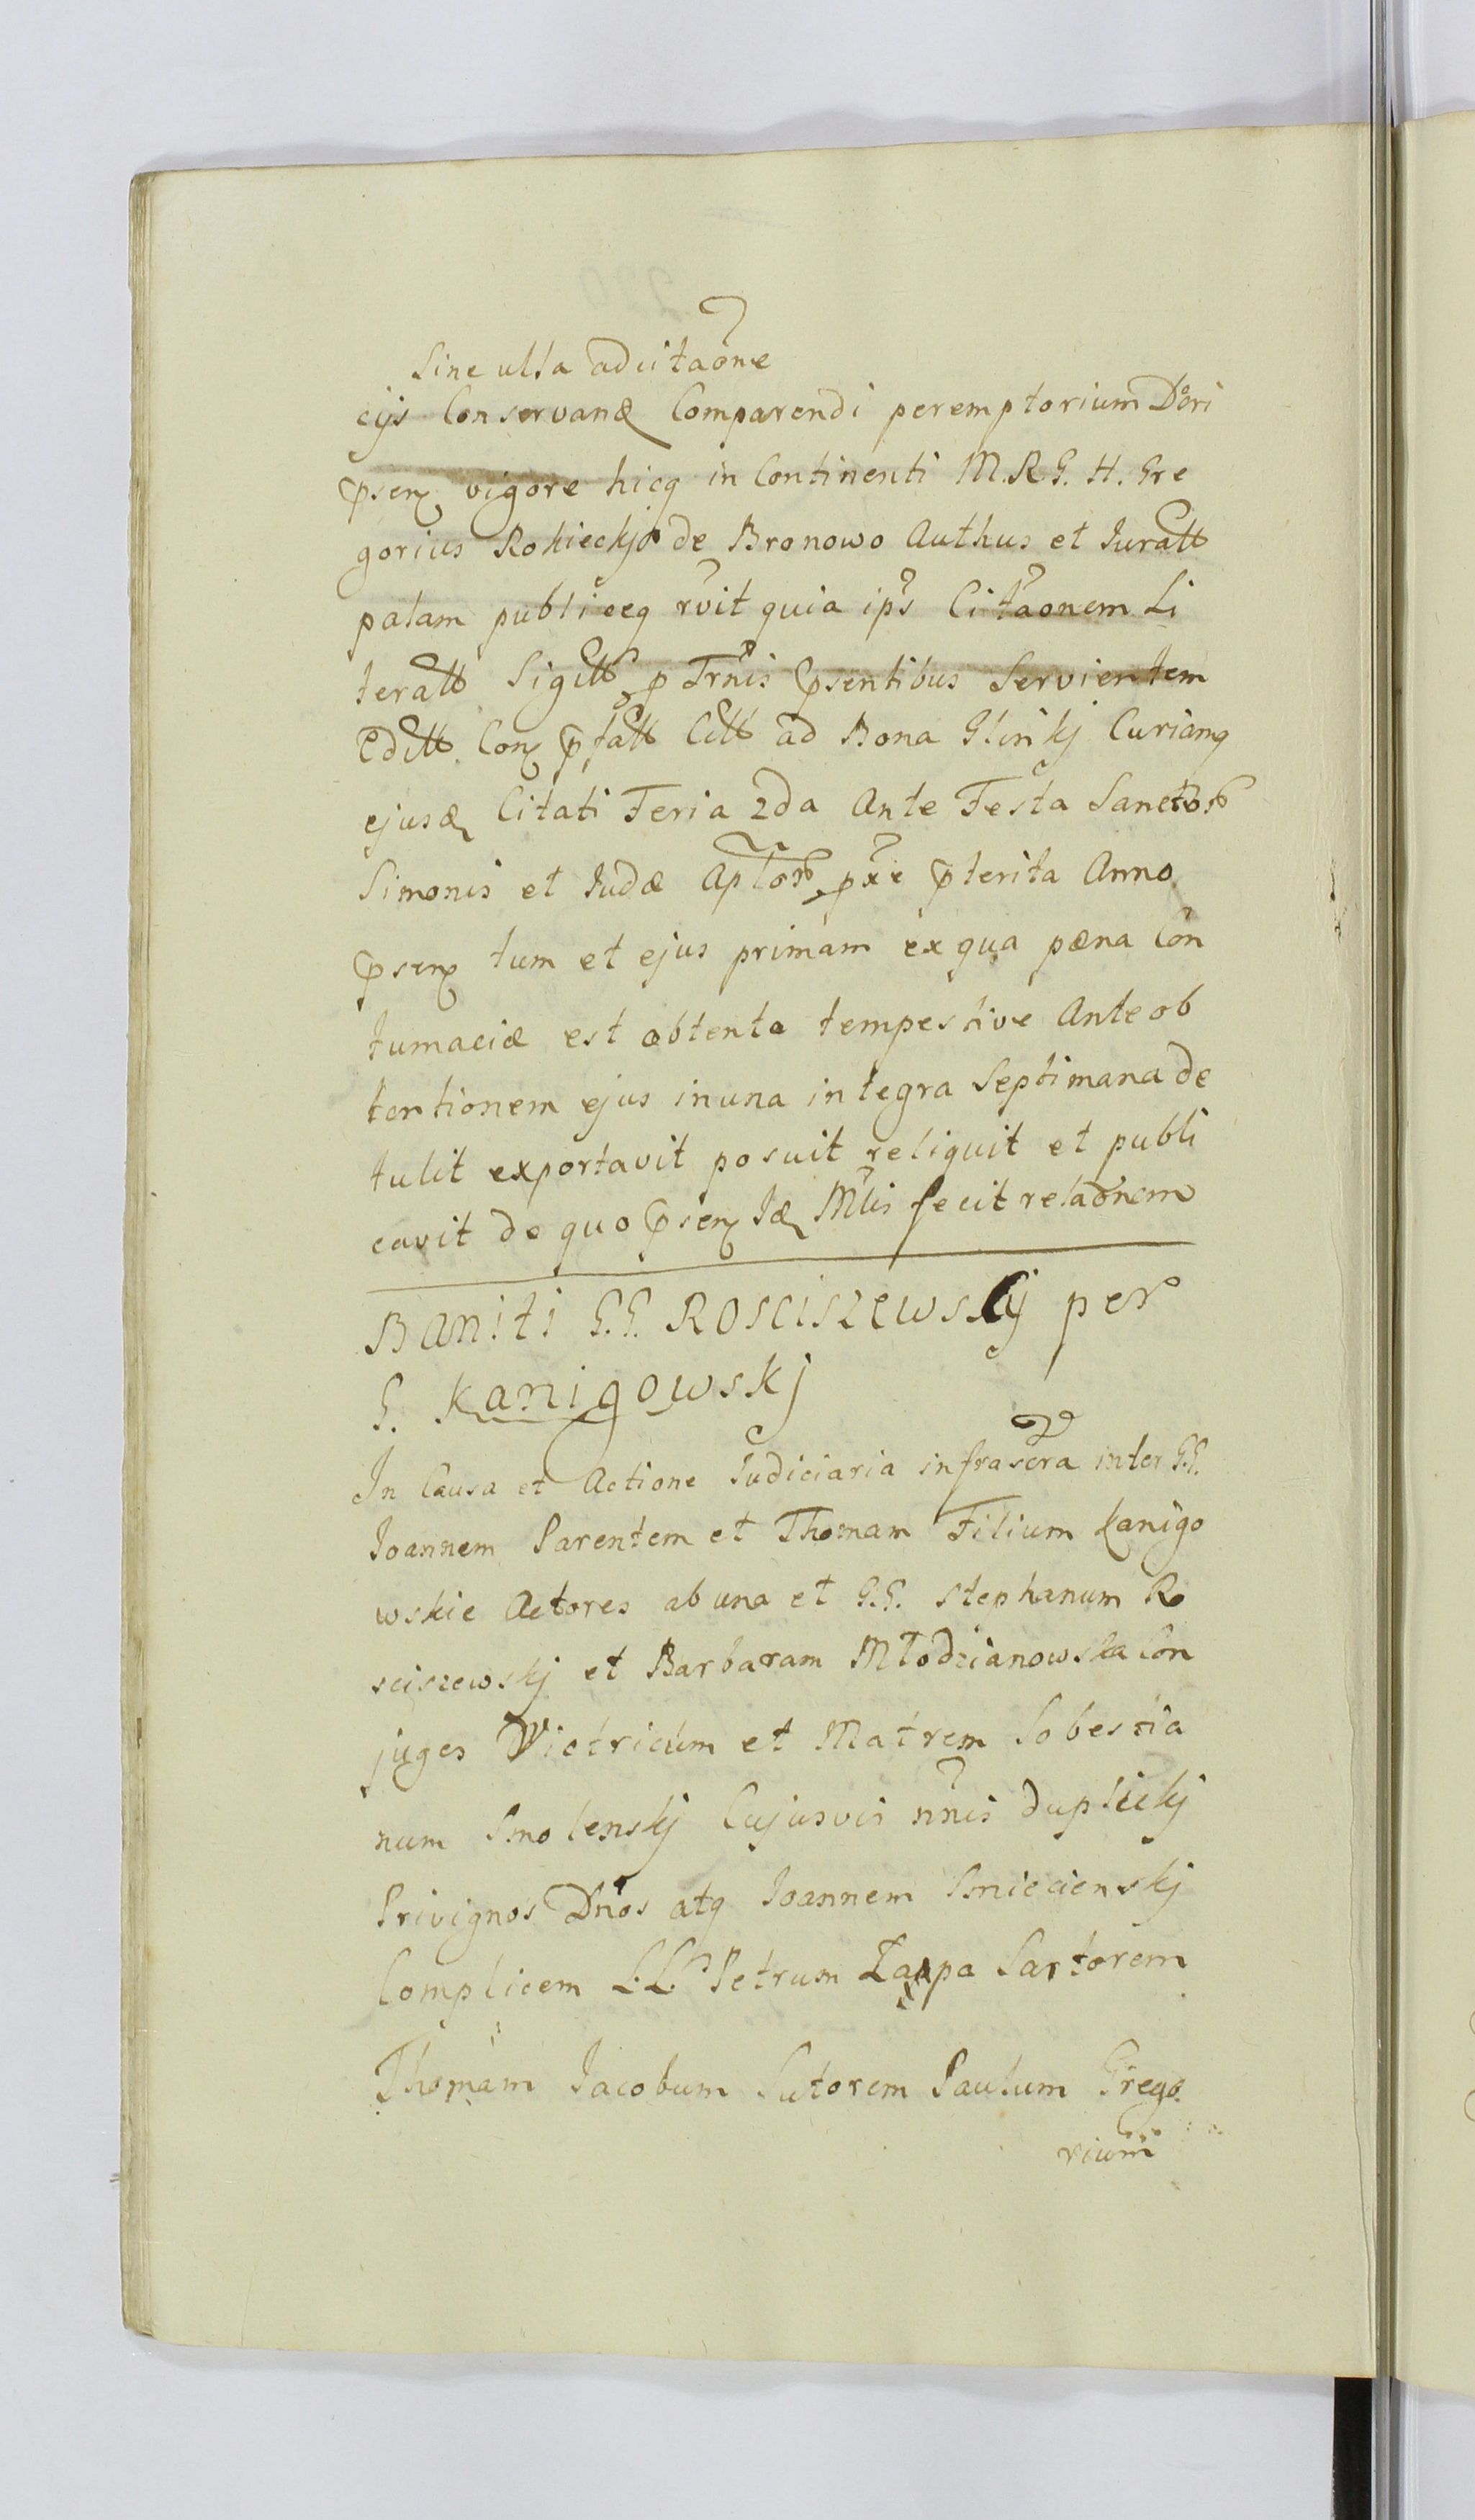 Sine ulla adcitaõne
cijs Conservand Comparendi peremptorium Dõri
pñsen vigore hicq in Continenti M.R.G. H. Gre
gorius Rokieckj de Bronowo Authus et Iuratt
palam publiceq rvit quia ips Citãonem Li
teratt Sigitt p Trnis pñsentibus Servientem
Editt Con pfatt Citt ad Bona Glinkj Curiamq
ejusd Citati Feria 2da Ante Festa Sanctor
Simonis et Iudæ Aplor pxe pterita Anno
pñsen tum et ejus primam ex qua pæna Con
tumaciæ est obtenta tempestive Ante ob
tentionem ejus in una integra Septimana de
tulit exportavit posuit reliquit et publi
cavit de quo pñsen Id Mlis fecit relaõnem
Baniti G.G. Rosciszewscy per
G. Kanigowskj
In Causa et Actione Iudiciaria infrascra inter G.G.
Ioannem Parentem et Thomam Filium Kanigo
wskie Actores ab una et G.G. Stephanum Ro
sciszewskj et Barbaram Młodzianowska Con
juges Victricum et Matrem Sobestia
num Smolenskj Cujusvis nnis duplickj
Privignos Dnos atq Ioannem Smiecienskj
Complicem L.L. Petrum Sartorem
Thomam Iacobum Sutorem Paulum Grego
rium